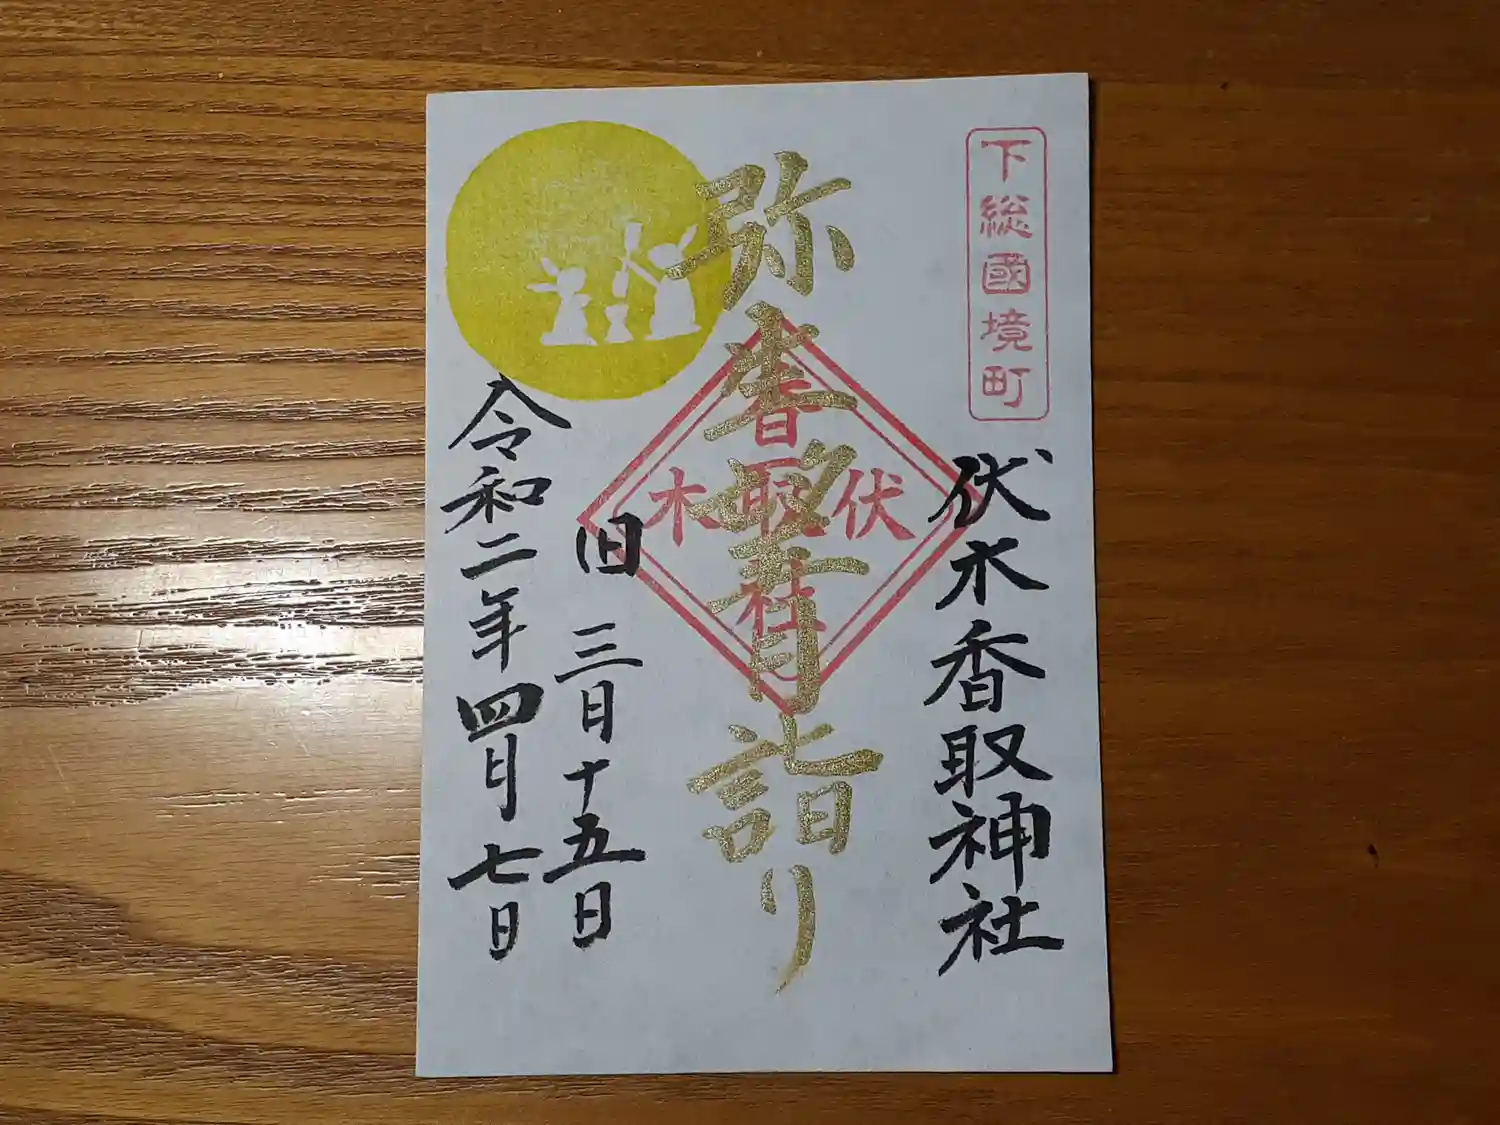 下総國境町
伏木香取神社
弥生望月詣り
香取社
伏木
旧三月十五日
令和二年四月七日